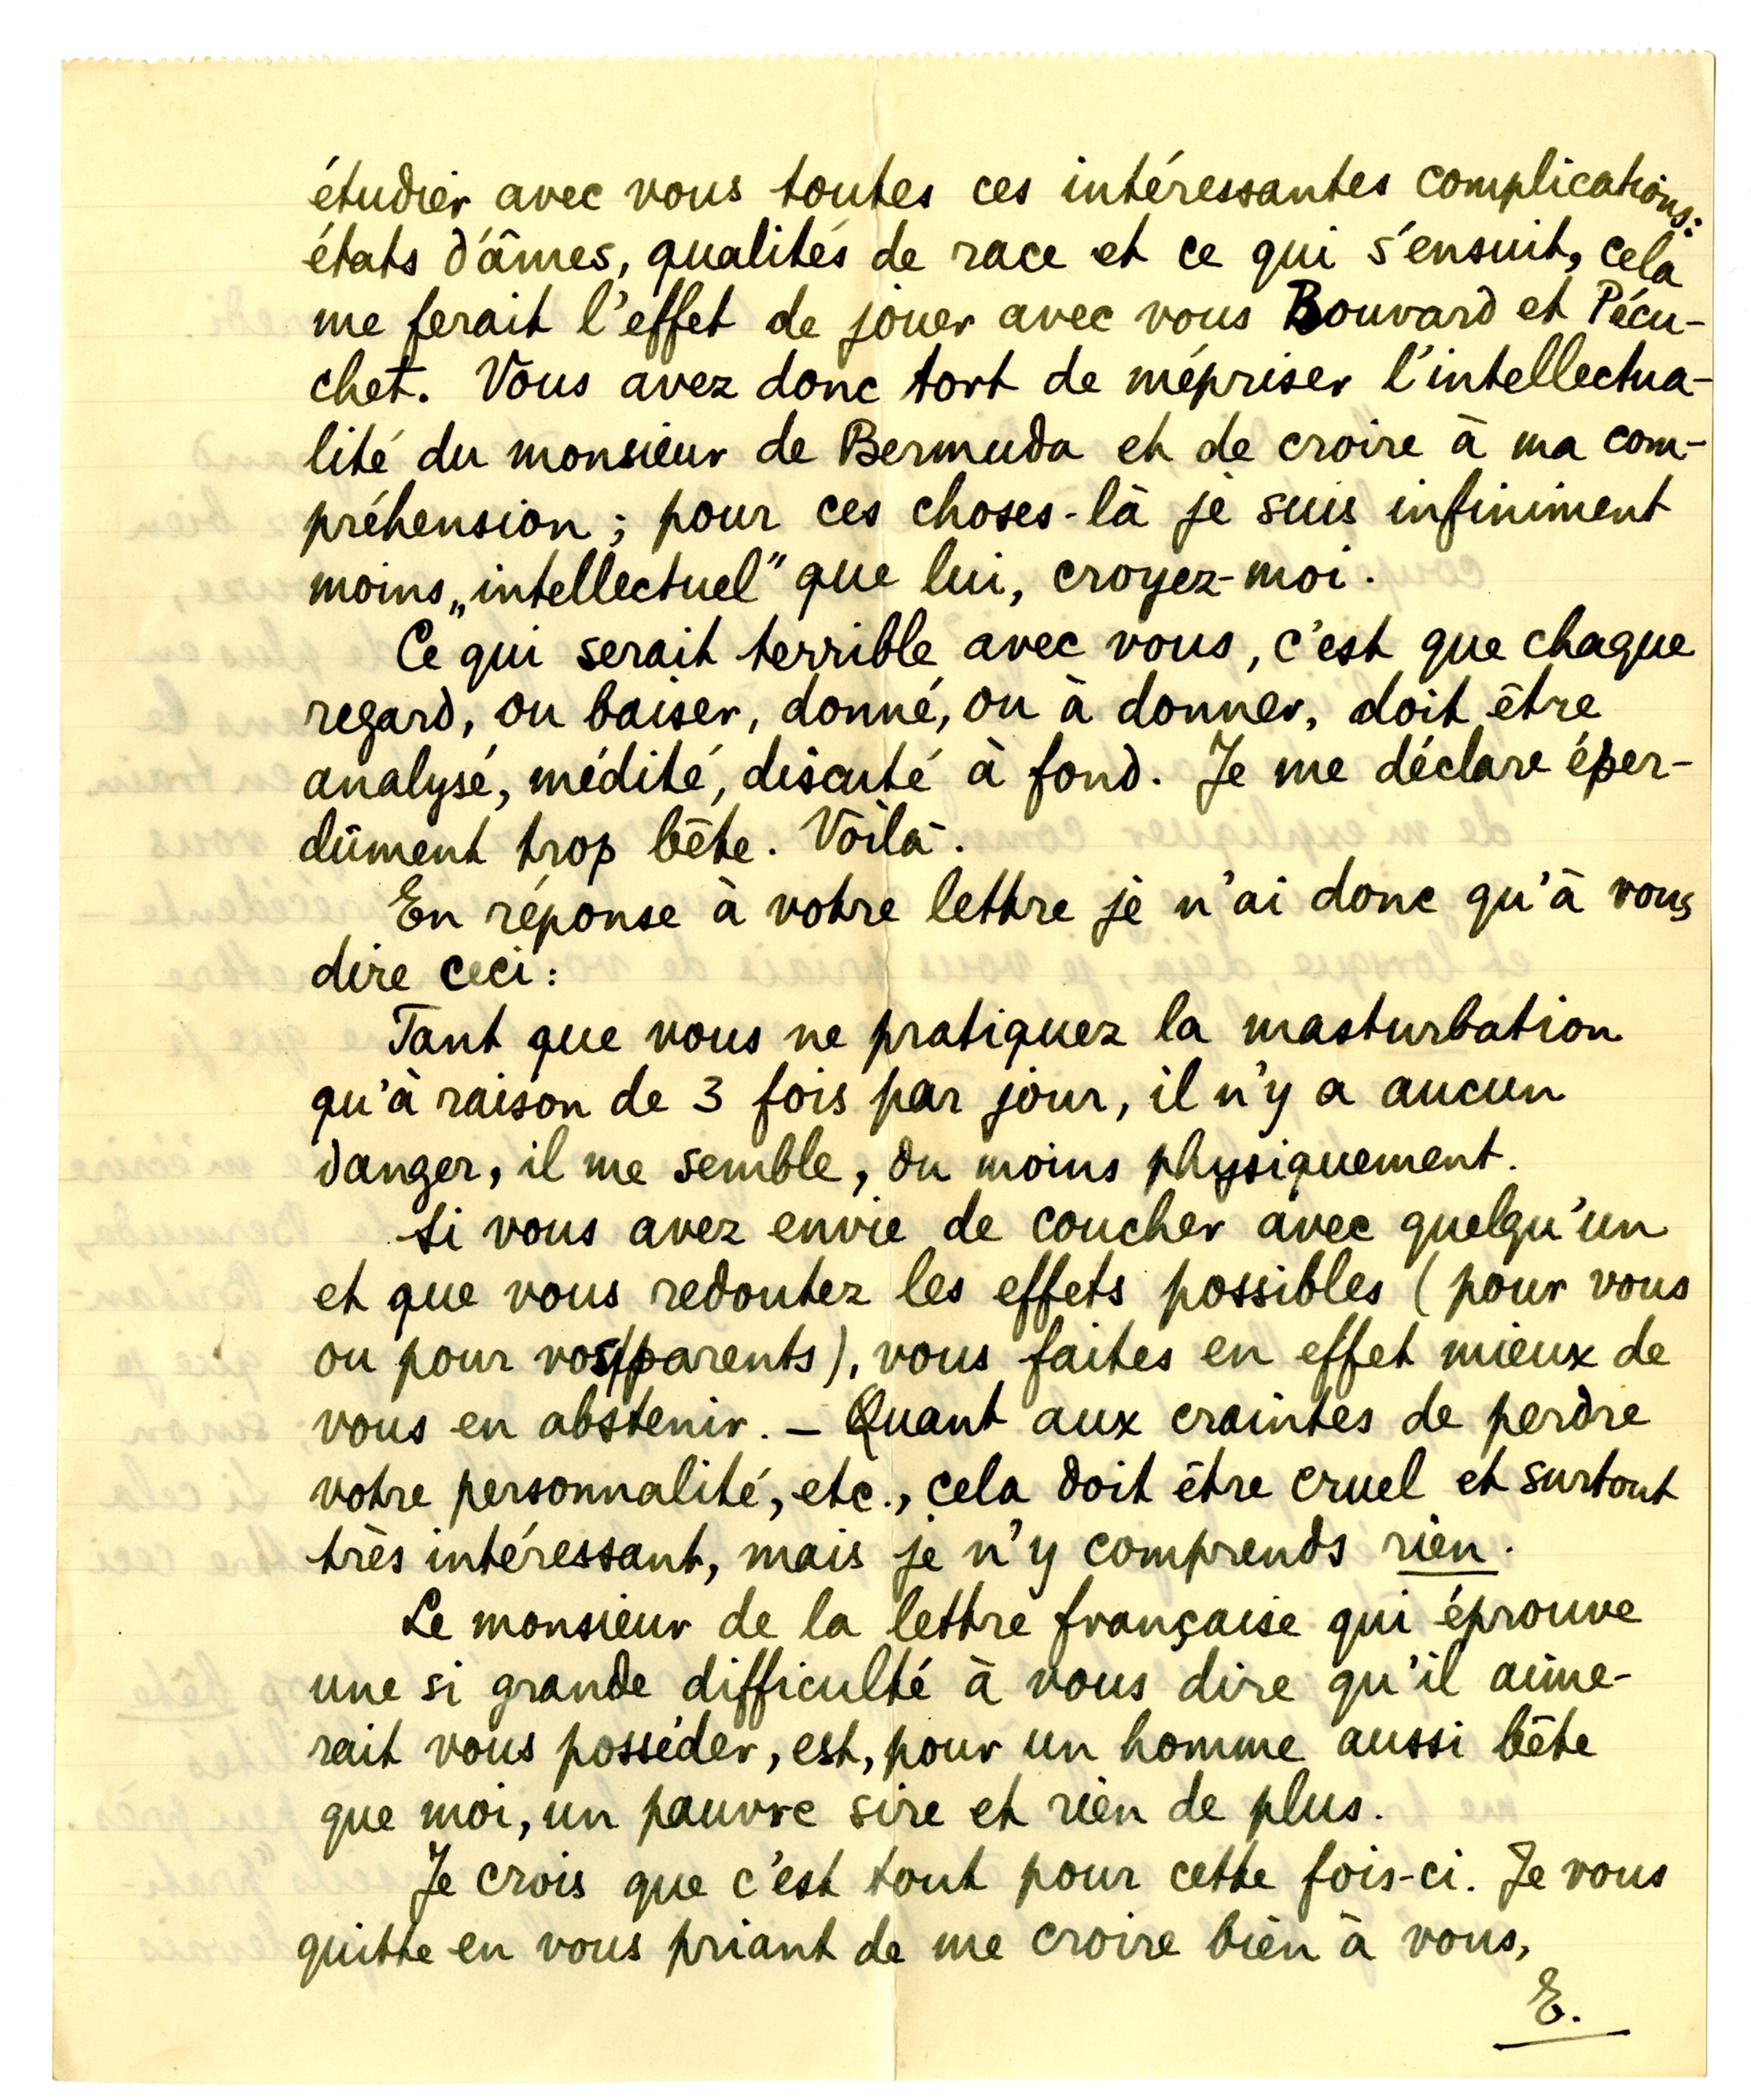 étudier avec vous toutes ces intéressantes complications:
états d'âmes, qualités de race et ce qui s'ensuit, cela
me ferait l'effet de jouer avec vous Bouvard et Pécu-
chet. Vous avez donc tort de mépriser l'intellectua-
lité du monsieur de Bermuda et de croire à ma com-
préhension; pour ces choses-là je suis infiniment
moins „intellectuel" que lui, croyez-moi.
Ce qui serait terrible avec vous, c'est que chaque
regard, ou baiser, donné, ou à donner, doit être
analysé, médité, discuté à fond. Je me déclare éper-
dûment trop bête. Voilà.
En réponse à votre lettre je n'ai donc qu'à vous
dire ceci:
Tant que vous ne pratiquez la masturbation
qu'à raison de 3 fois par jour, il n'y a aucun
danger, il me semble, du moins physiquement.
Si vous avez envie de coucher avec quelqu'un
et que vous redoutez les effets possibles (pour vous
ou pour vos/parents), vous faites en effet mieux de
vous en abstenir. – Quant aux craintes de perdre
votre personnalité, etc., cela doit être cruel et surtout
très intéressant, mais je n'y comprends rien.
Le monsieur de la lettre française qui éprouve
une si grande difficulté à vous dire qu'il aime-
rait vous posséder, est, pour un homme aussi bête
que moi, un pauvre sire et rien de plus.
Je crois que c'est tout pour cette fois-ci. Je vous
quitte en vous priant de me croire bien à vous,
E.